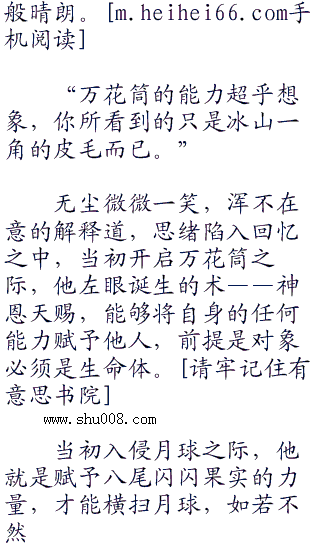 般晴朗。[m.heihei66.com手
机阅读]
“万花筒的能力超乎想
象，你所看到的只是冰山一
角的皮毛而已。”
无尘微微一笑，浑不在
意的解释道，思绪陷入回忆
之中，当初开启万花筒之
际，他左眼诞生的术——神
恩天赐，能够将自身的任何
能力赋予他人，前提是对象
必须是生命体。[请牢记住有
意思书院]
www.shu008.com
当初入侵月球之际，他
就是赋予八尾闪闪果实的力
量，才能横扫月球，如若不
然